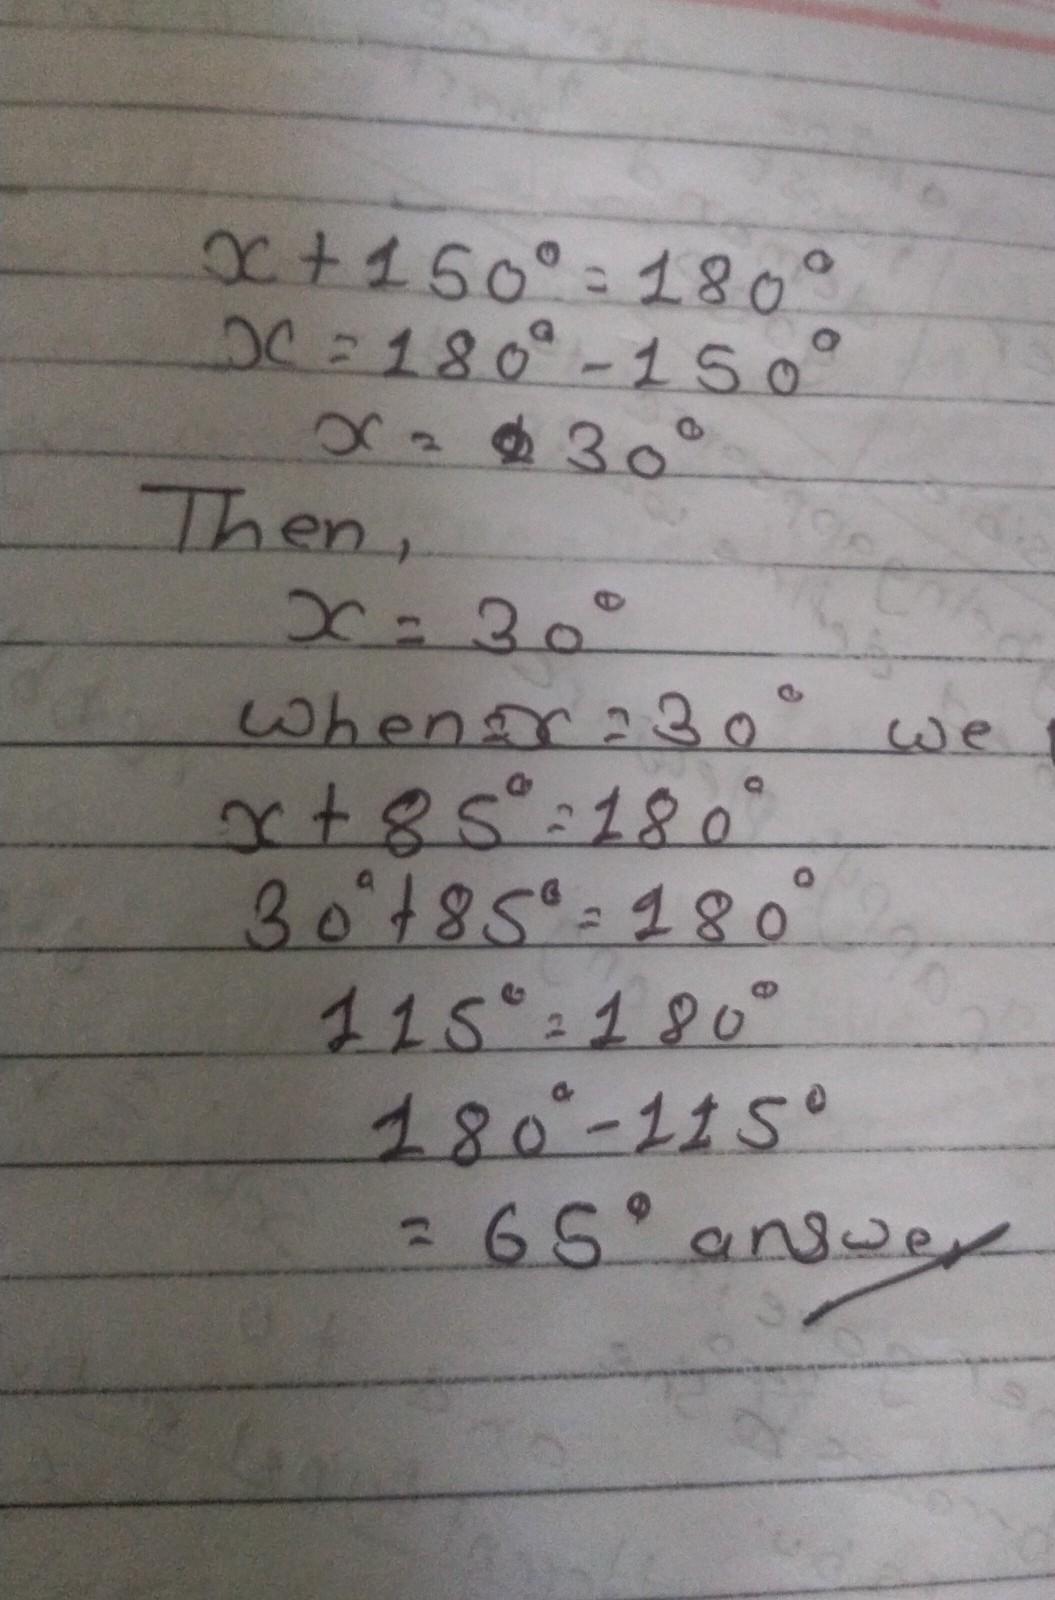 x + 150° = 180°
x = 180° - 150°
x = 30°
Then,
x = 30°
when x = 30° we
x + 85° = 180°
30° + 85° = 180°
115° = 180°
180° - 115°
= 65° answer